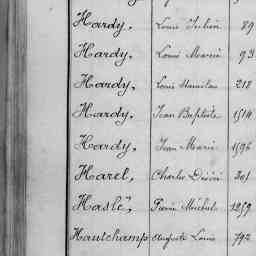 Hardy, Louis Julien 89
Hardy, Louis Marie 93
Hardy, Louis Stanislas 218
Hardy, Jean Baptiste 1514
Hardy, Jean Marie 1596
Harel, Charles Désiré 201
Haslé, Pierre Michel 1259
Hautchamp Auguste Louis 792